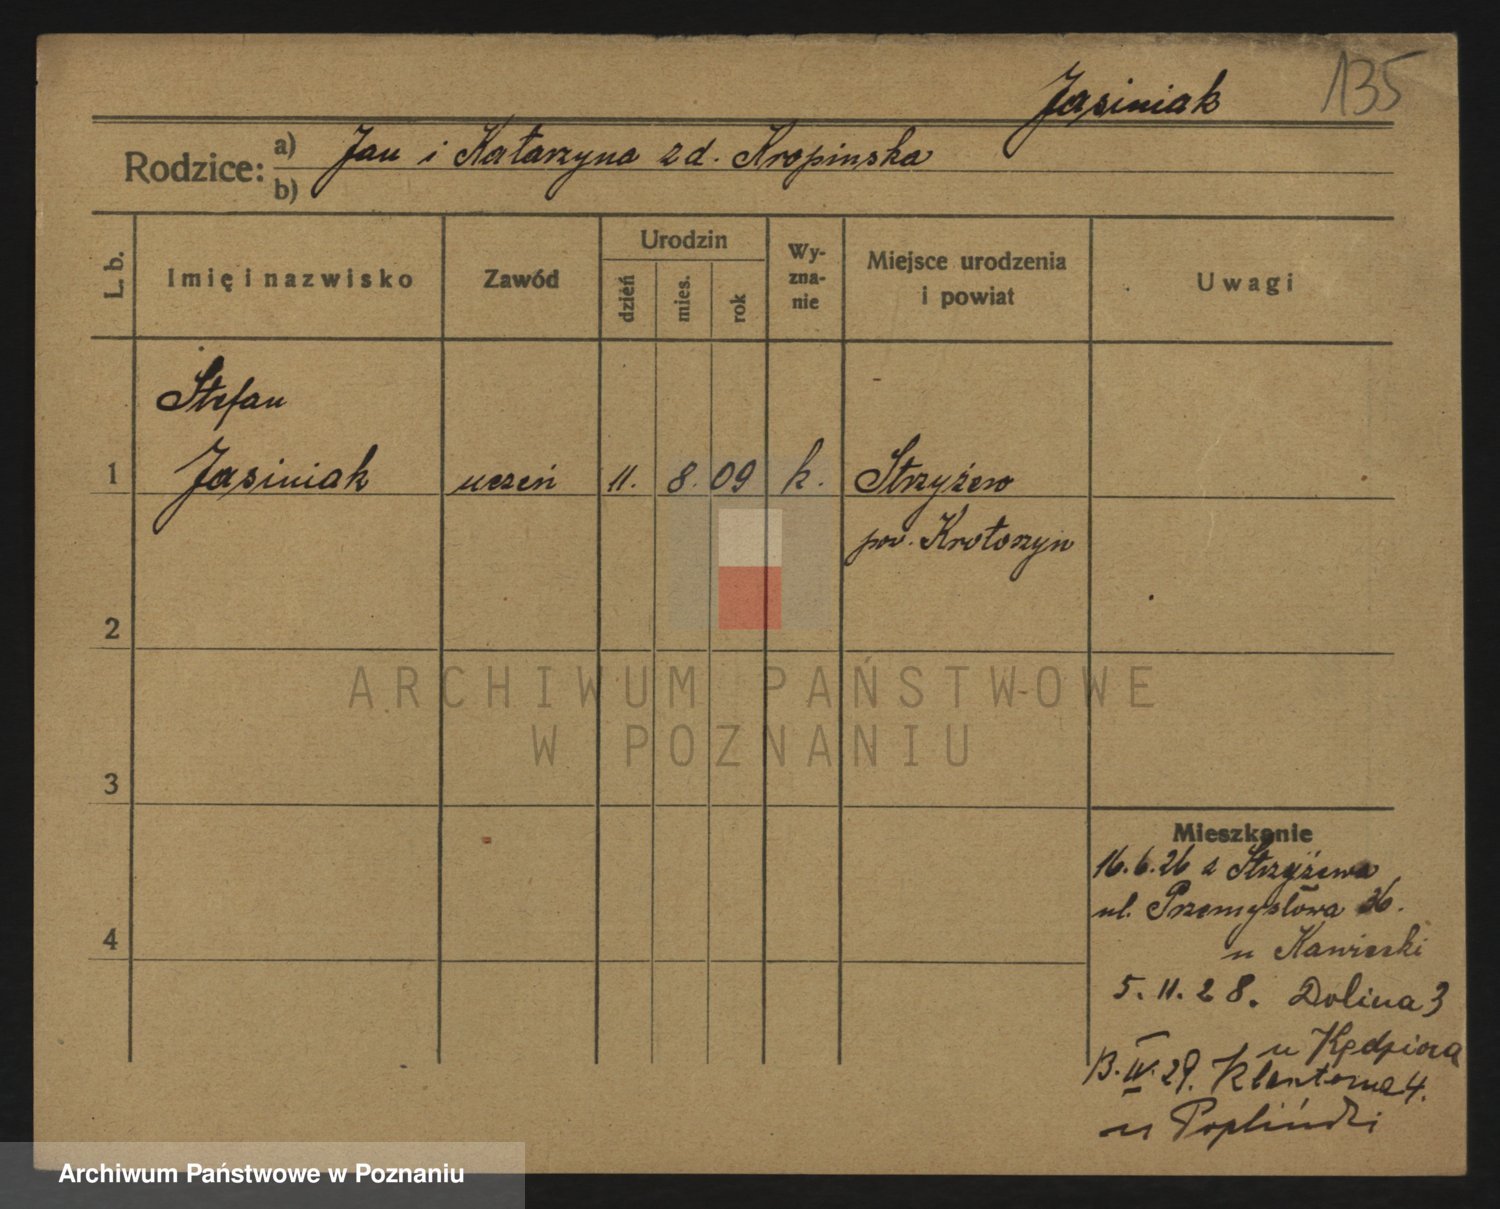 Jasiniak 135
Rodzice: a) Jan i Katarzyna zd. Kropinska
b)
L. b. Imię i nazwisko Zawód Urodzin dzień mies. rok Wyznanie Miejsce urodzenia i powiat Uwagi
Stefan
1 Jasiniak uczeń 11. 8. 09 k. Strzyżew
pow. Krotoszyn
2
ARCHIWUM PAŃSTWOWE
W POZNANIU
3
Mieszkanie
16.6.26 z Strzyżewa
ul. Przemysłowa 36.
4
u Kawiecki
5.11.28. Dolina 3
u Kędziora
13.IV.29. 4.
u
Archiwum Państwowe w Poznaniu